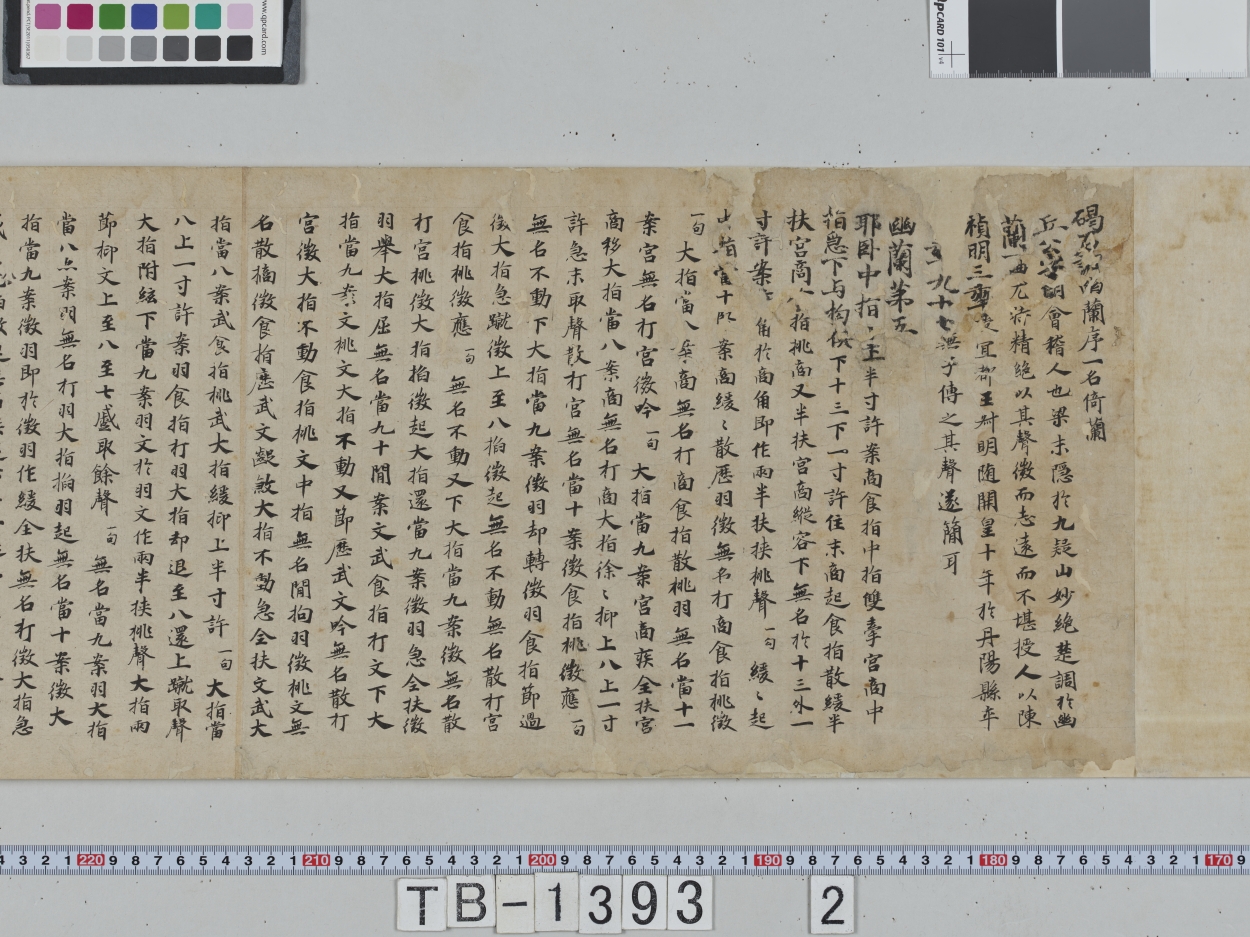 碣石調幽蘭序一名倚蘭
丘公字明會稽人也梁末隱於九疑山妙絕楚調於幽
蘭一曲尤特精絕以其聲微而志遠而不堪授人以陳
禎明三年授宜都王叔明隨開皇十年於丹陽縣卒
九十七無子傳之其聲遂簡耳
幽蘭第五
耶臥中指半寸許案商食指中指雙牽宮商中
指急下与拘俱下十三下一寸許住末商起食指散緩半
扶宮商食指挑商又半扶宮商縱容下無名於十三外一
寸許案商角於商角即作兩半扶挾挑聲一句 緩〻起
無名於十三外一寸許案商角 
案商緩〻散歷羽徵無名打商食指挑徵
一句 大指當八案商無名打商食指散挑羽無名當十一
案宮無名打宮徵吟一句 大指當九案宮商疾全扶宮
商移大指當八案商無名打商大指徐〻抑上八上一寸
許急末取聲散打宮無名當十案徵食指挑徵應一句
無名不動下大指當九案徵羽却轉徵羽食指節過
徵大指急蹴徵上至八指徵起無名不動無名散打宮
食指挑徵應一句 無名不動又下大指當九案徵無名散
打宮挑徵大指掐徵起大指還當九案徵羽急全扶徵
羽舉大指屈無名當九十間案文武食指打文下大
指當九案文挑文大指不動又節歷武文吟無名散打
宮徵大指不動食指挑文中指無名間拘羽徵挑文無
名散擿徵食指歷武文齪敓大指不動急全扶文武大
指當八案武食指挑武大指緩抑上半寸許一句 大指當
八上一寸許案羽食指打羽大指却退至八還上蹴取聲
大指附絃下當九案羽文於羽文作兩半挾挑聲大指兩
節抑文上至八至七慼取餘聲一句 無名當九案羽大指
當八案羽無名打羽大指掐羽起無名當十案徵大
指當九案徵羽即於徵羽作緩全扶無名打徵大指急
www.qpcard.com
QpCARD 101 v4
4 3 2 1 220 9 8 7 6 5 4 3 2 1 210 9 8 7 6 5 4 3 2 1 200 9 8 7 6 5 4 3 2 1 190 9 8 7 6 5 4 3 2 1 180 9 8 7 6 5 4 3 2 1 170 9
TB-1393 2